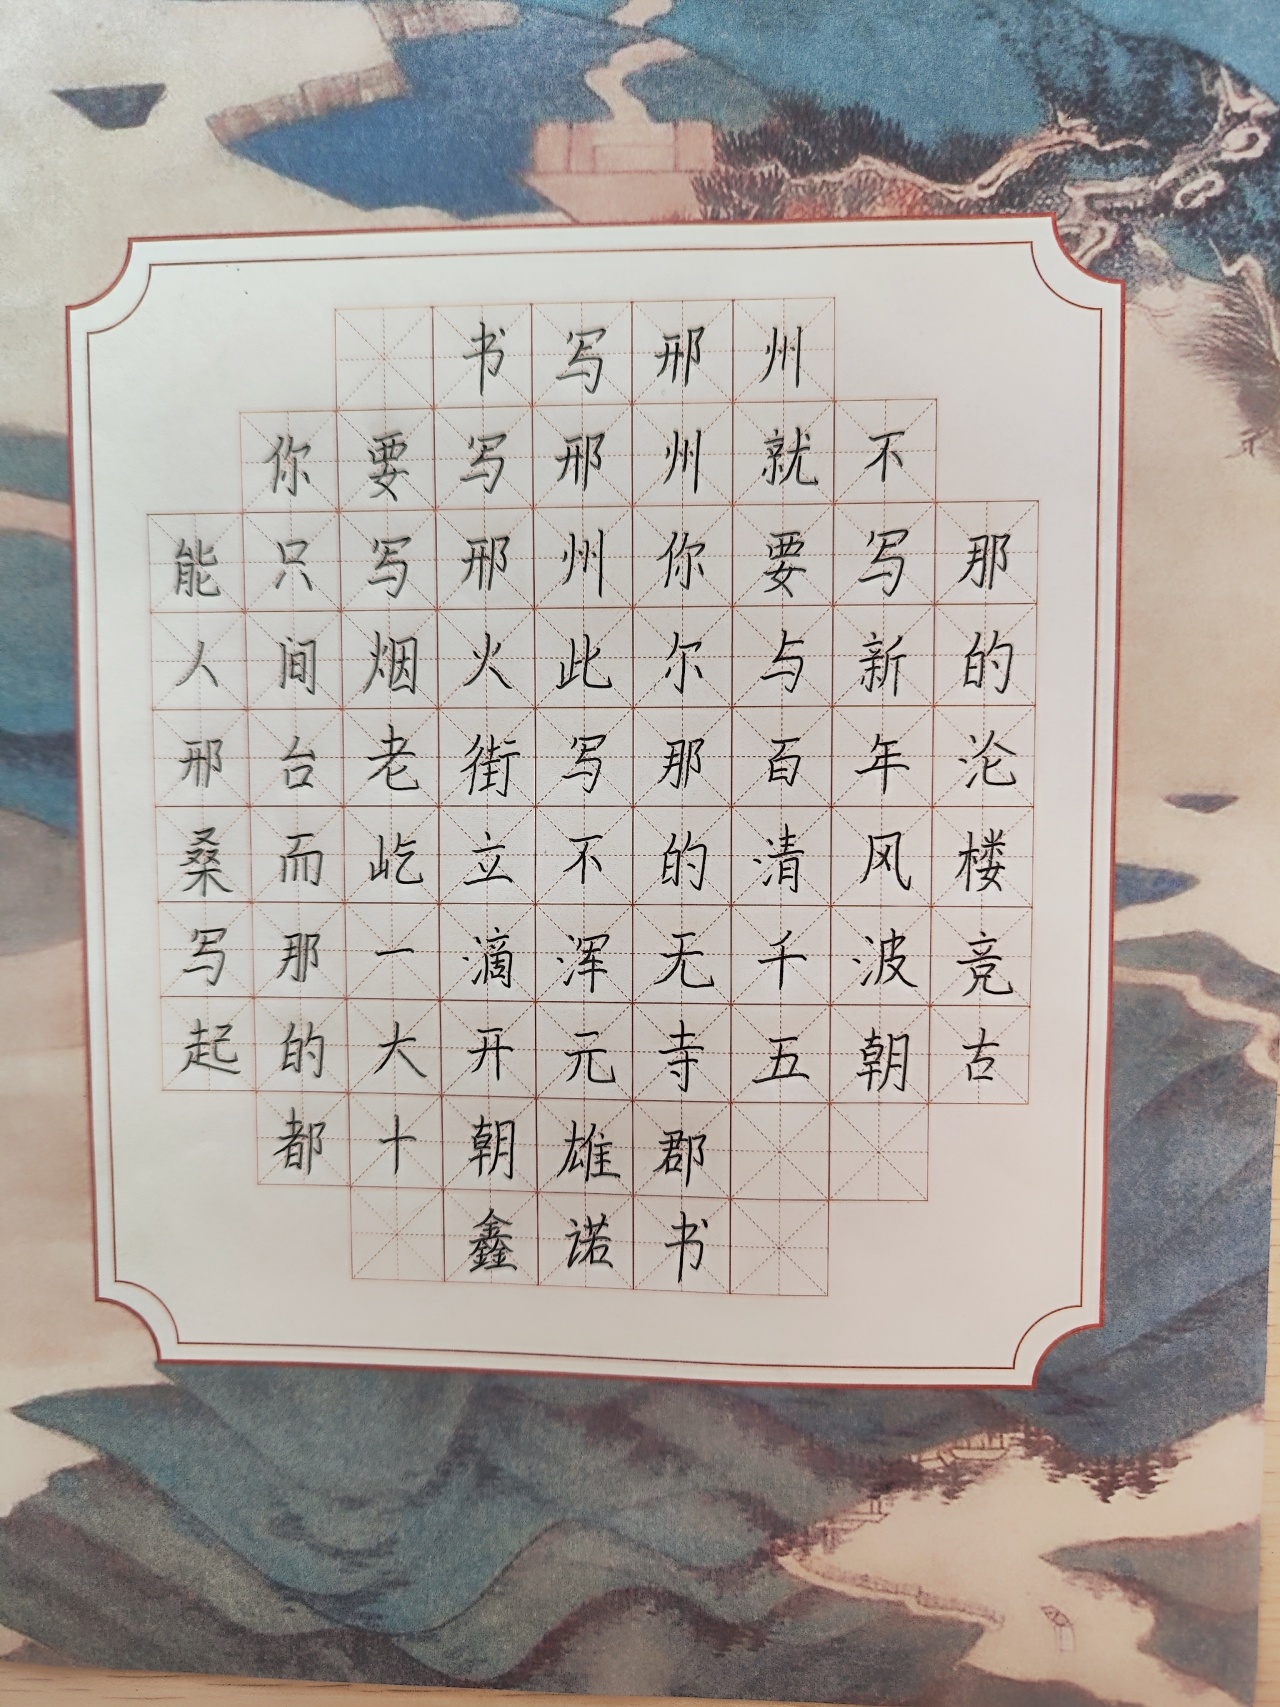 书写邢州
你要写邢州就不
能只写邢州你要写那
人间烟火此尔与新的
邢台老街写那百年沦
桑而屹立不的清风楼
写那一滴浑无千波竞
起的大开元寺五朝古
都十朝雄郡
鑫诺书